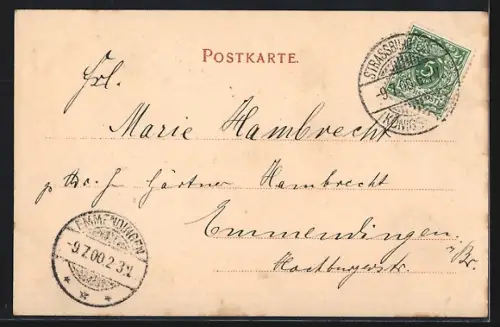 POSTKARTE.
STRASSBURG
KÖNIGS
5
Frl.
Marie Hambrecht
p. Gärtner Hambrecht
Emmendingen
i/Br.
Hochburgerstr.
EMMENDINGEN
-9.7.00.2-3N.